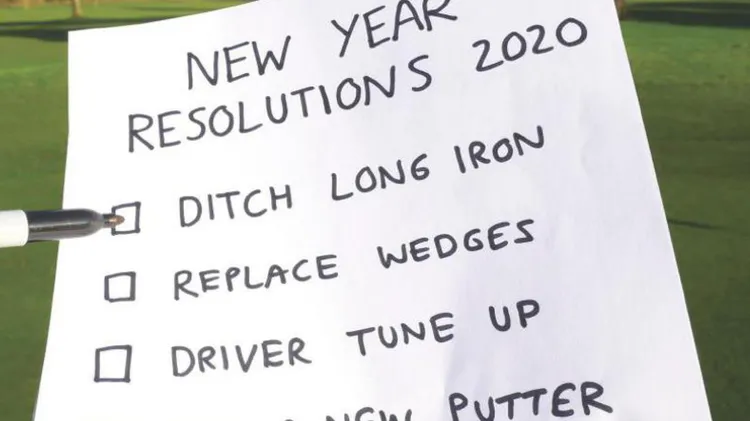 NEW YEAR
RESOLUTIONS 2020
DITCH LONG IRON
REPLACE WEDGES
DRIVER TUNE UP
NEW PUTTER